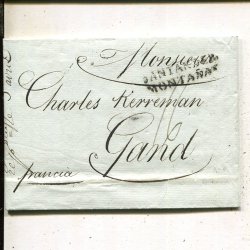 Monsieur
SANTANDER
MONTAÑAS
Charles Kerreman
Gand
francia